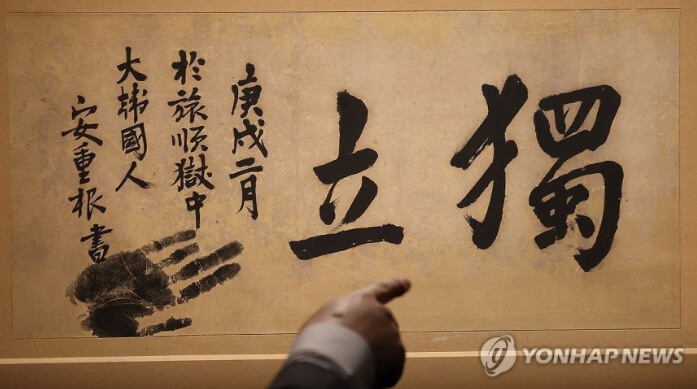 獨立
庚戌二月
於旅順獄中
大韓國人
安重根書
© YONHAP NEWS